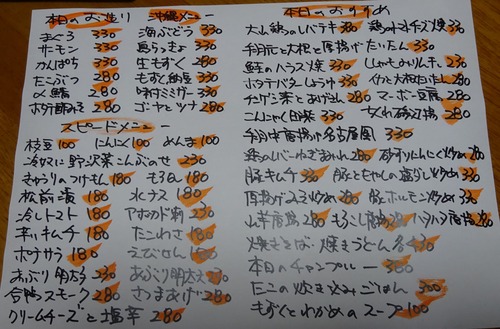 本日のお造り
まぐろ 330
サーモン 330
かんぱち 330
たこぶつ 280
〆鯖 280
ホタテ 280
沖縄メニュー
海ぶどう 330
島らっきょ 330
生もずく 280
もずく納豆 280
味付ミミガー 330
ゴーヤとツナ 280
スピードメニュー
枝豆 100 にんにく 100 めんま 100
冷奴に野沢菜こんぶのせ 230
きゅうりのつけもん 180 もろきゅう 180
松前漬 180 水ナス 180
冷しトマト 180 アボカド刺 230
辛いキムチ 180 たこわさ 180
ポテサラ 180 えびせん 180
あぶり明太子 230 あぶりめんたい 230
合鴨スモーク 280 さつまあげ 280
クリームチーズと塩辛 280
本日のおすすめ
大山鶏のレバテキ 380 鶏のオイチーズ焼 330
手羽元と大根と厚揚げたいたん 330
鮭のハラス焼 330 ししゃもみりん干し 330
ホタテバターしょうゆ 330 イカと大根たいたん 280
チンゲン菜とあげさん 280 マーボー豆腐 280
こんにゃく田楽 330 ちくわ磯辺揚 280
手羽中唐揚げ名古屋風 330
鶏のレバーねぎまみれ 280 砂ずりにんにく炒め 280
豚キムチ 330 豚ともやしの塩ダレ炒め 330
厚揚げみそ炒め 280 豚ホルモン炒め 330
山芋唐揚 280 もろこし唐揚 280 ハタハタ唐揚 280
焼きそば・焼きうどん 各430
本日のチャンプルー 380
たこの炊き込みごはん 300
もずくとわかめのスープ 100